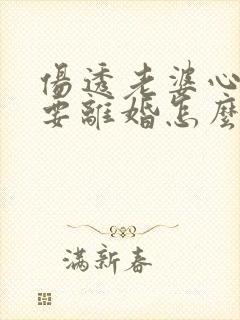 傷透老婆心
要離婚怎麼
满新春